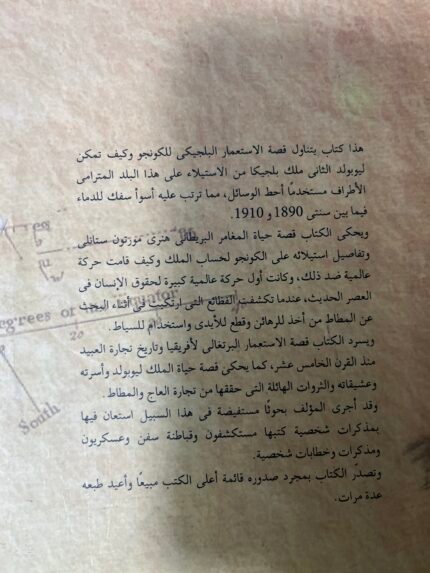 هذا كتاب يتناول قصة الاستعمار البلجيكى للكونجو وكيف تمكن
ليوبولد الثانى ملك بلجيكا من الاستيلاء على هذا البلد المترامى
الأطراف مستخدمًا أحط الوسائل، مما ترتب عليه أسوأ سفك للدماء
فيما بين سنتى 1890 و 1910.
ويحكى الكتاب قصة حياة المغامر البريطانى هنرى مورتون ستانلى
وتفاصيل استيلائه على الكونجو لحساب الملك وكيف قامت حركة
عالمية ضد ذلك، وكانت أول حركة عالمية كبيرة لحقوق الإنسان فى
العصر الحديث، عندما تكشفت الفظائع التى ارتكبت فى أثناء البحث
عن المطاط من أخذ للرهائن وقطع للأيدى واستخدام للسياط.
ويسرد الكتاب قصة الاستعمار البرتغالى لأفريقيا وتاريخ تجارة العبيد
منذ القرن الخامس عشر، كما يحكى قصة حياة الملك ليوبولد وأسرته
وعشيقاته والثروات الهائلة التى حققها من تجارة العاج والمطاط.
وقد أجرى المؤلف بحوثًا مستفيضة فى هذا السبيل استعان فيها
بمذكرات شخصية كتبها مستكشفون وقباطنة سفن وعسكريون
ومذكرات وخطابات شخصية.
وتصدّر الكتاب بمجرد صدوره قائمة أعلى الكتب مبيعًا وأعيد طبعه
عدة مرات.
egrees or
20
South